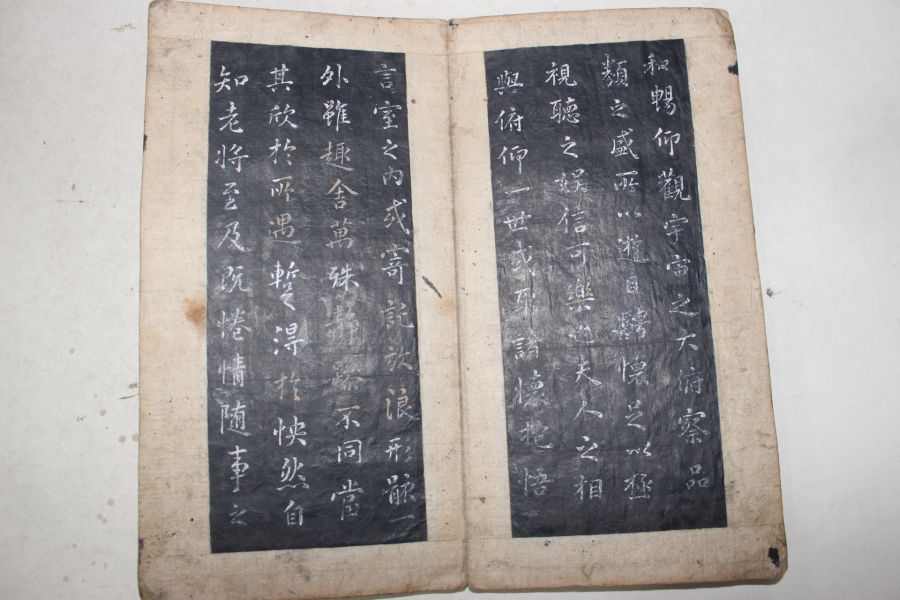 和暢仰觀宇宙之大俯察品
類之盛所以遊目騁懷足以極
視聽之娛信可樂也夫人之相
與俯仰一世或取諸懷抱悟
言室之内或寄託放浪形骸
外雖趣舍萬殊靜躁不同當
其欣於所遇蹔得於怏然自
知老將至及既惓情随事之